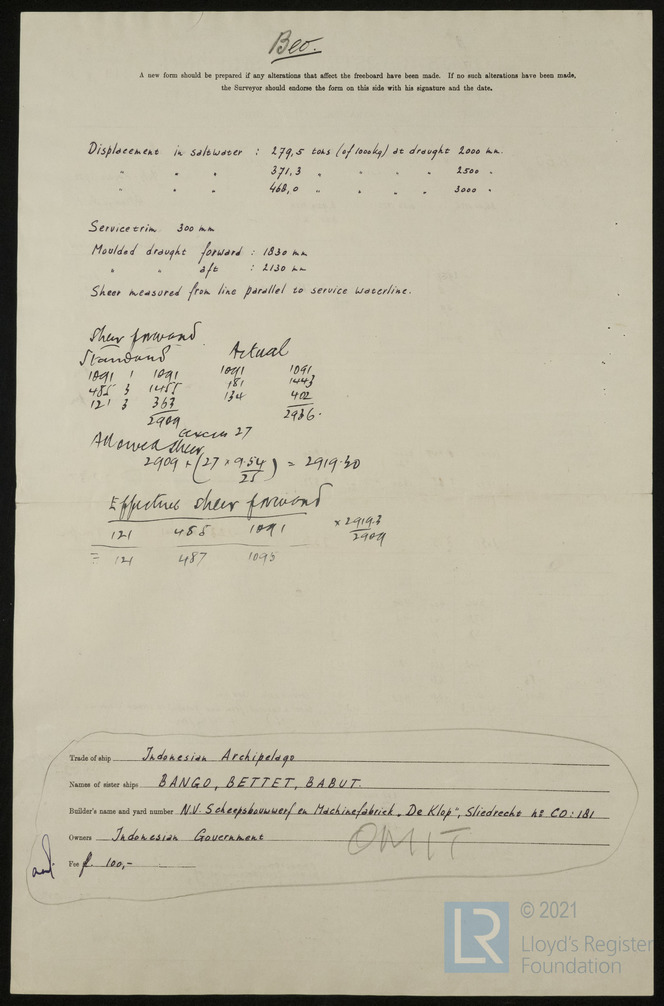 Beo.
A new form should be prepared if any alterations that affect the freeboard have been made. If no such alterations have been made,
the Surveyor should endorse the form on this side with his signature and the date.
Displacement in saltwater : 279,5 tons (of 1000kg) at draught 2000 mm.
" " " 371,3 " " " " 2500 "
" " " 468,0 " " " " 3000 "
Servicetrim 300 mm
Moulded draught forward : 1830 mm
" " aft : 2130 mm
Sheer measured from line parallel to service waterline.
Sheer forward
Standard Actual
1091 1 1091 1091 1091
485 3 1455 481 1443
121 3 363 134 402
2909 2936.
excess 27
Allowed sheer
2909 + (27 × 9.54 / 25) = 2919.30
Effective sheer forward
121 485 1091 × 2919.3 / 2909
= 121 487 1095
Trade of ship Indonesian Archipelago
Names of sister ships BANGO, BETTET, BABUT.
Builder's name and yard number N.V. Scheepsbouwwerf en Machinefabriek „De Klop", Sliedrecht no CO: 181
Owners Indonesian Government
OMIT
Fee f. 100,-
LR
© 2021
Lloyd's Register
Foundation